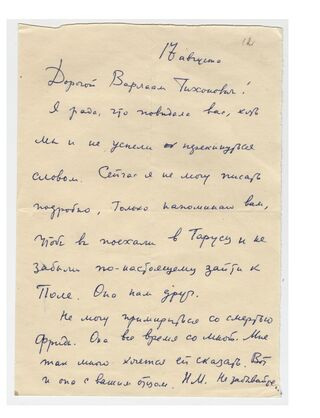 17 августа
12
Дорогой Варлаам Тихонович!
Я рада, что повидала вас, хоть
мы и не успели перекинуться
словом. Сейчас я не могу писать
подробно, только напоминаю вам,
чтоб вы поехали в Тарусу и не
забыли по-настоящему зайти к
Поле. Она нам друг.
Не могу примириться со смертью
Фриды. Она все время со мной. Мне
так много хочется ей сказать. Вот
и она с вашим отзом. Н.М. Не забывайте